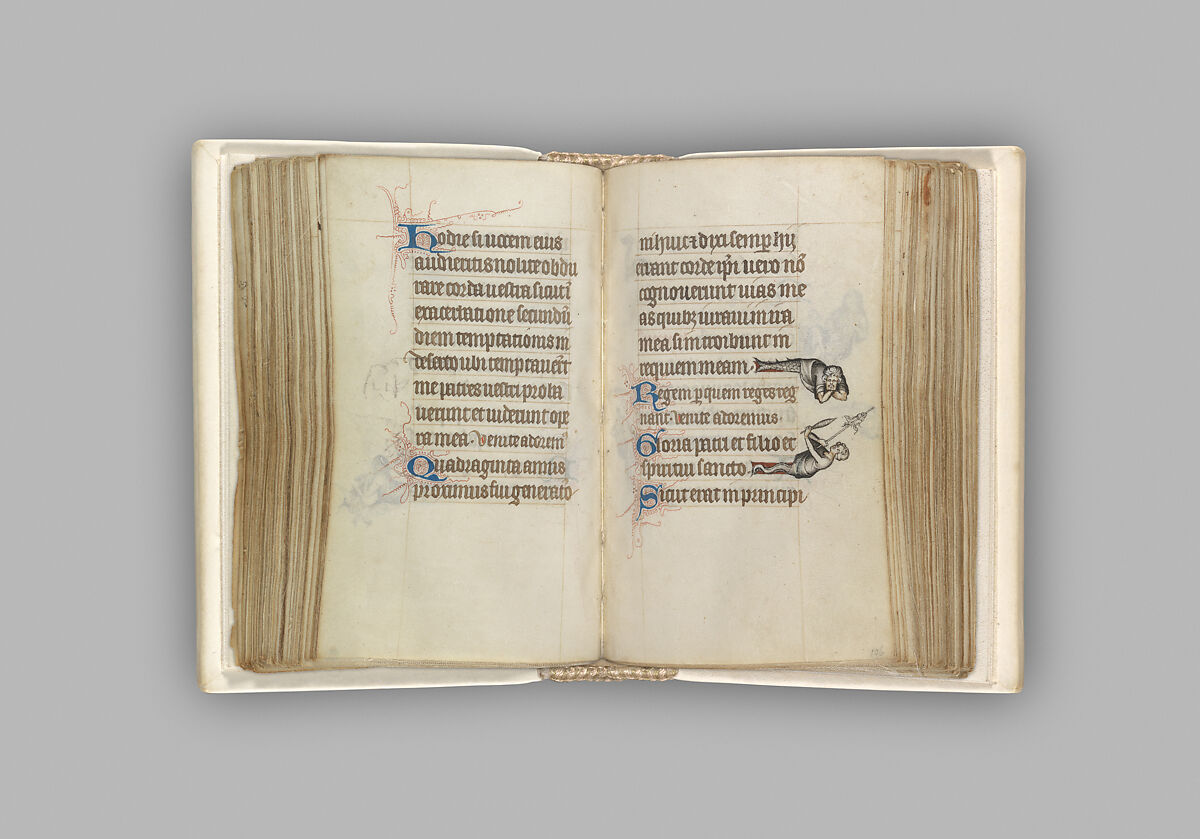 Hodie si uocem eius
audieritis nolite obdu
rare corda uestra sicut ī
exacerbatione secundū
diem temptationis in
deserto ubi temptauerūt
me patres uestri proba
uerunt et uiderunt ope
ra mea. Venite adorem9
Quadraginta annis
proximus fui generatio
ni huic ⁊ dixi semp̱ hij
errant corde ip̄i uero nō
cognouerunt uias me
as quibȝ iuraui in ira
mea si introibunt in
requiem meam.
Regem p̱ quem reges reg
nant. Venite adoremus.
Gloria patri et filio et
spiritui sancto.
Sicut erat in principi
106